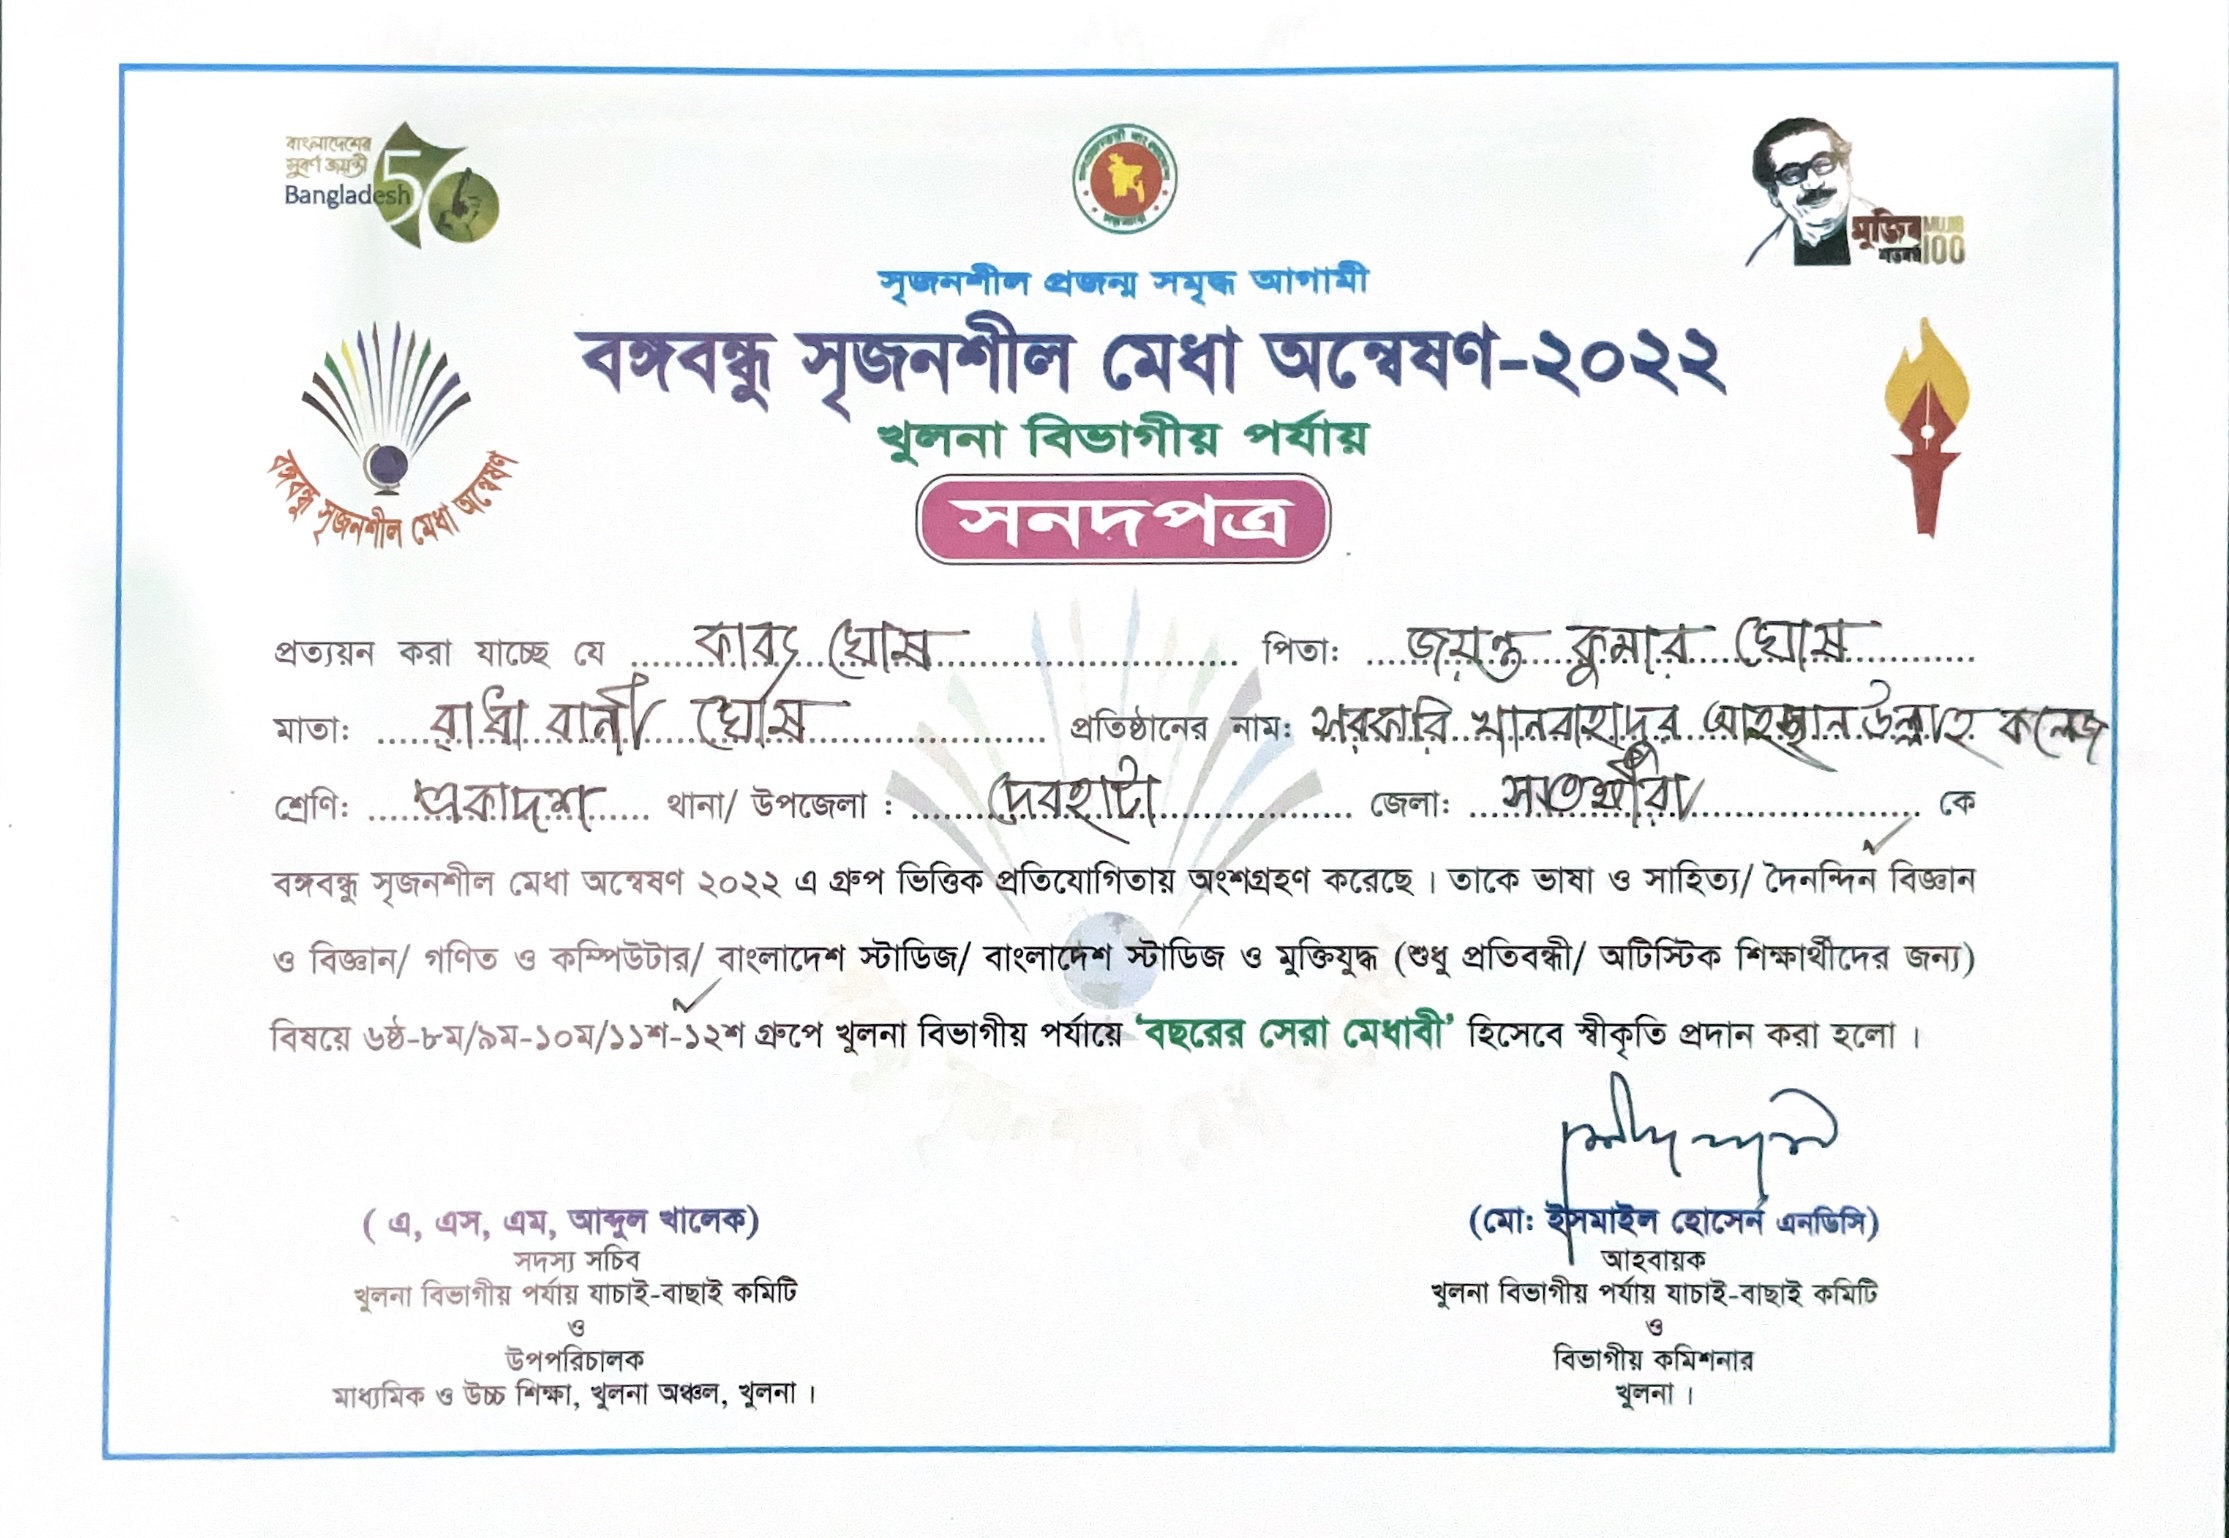 বাংলাদেশের
সুবর্ণ জয়ন্তী
Bangladesh 50
মুজিব MUJIB
শতবর্ষ 100
সৃজনশীল প্রজন্ম সমৃদ্ধ আগামী
বঙ্গবন্ধু সৃজনশীল মেধা অন্বেষণ-২০২২
খুলনা বিভাগীয় পর্যায়
বঙ্গবন্ধু সৃজনশীল মেধা অন্বেষণ
সনদপত্র
প্রত্যয়ন করা যাচ্ছে যে কাব্য ঘোষ পিতা: জয়ন্ত কুমার ঘোষ
মাতা: রাধা রানী ঘোষ প্রতিষ্ঠানের নাম: সরকারি খানবাহাদুর আহছানউল্লাহ কলেজ
শ্রেণি: একাদশ থানা/ উপজেলা : দেবহাটা জেলা: সাতক্ষীরা কে
বঙ্গবন্ধু সৃজনশীল মেধা অন্বেষণ ২০২২ এ গ্রুপ ভিত্তিক প্রতিযোগিতায় অংশগ্রহণ করেছে। তাকে ভাষা ও সাহিত্য/ দৈনন্দিন বিজ্ঞান
ও বিজ্ঞান/ গণিত ও কম্পিউটার/ বাংলাদেশ স্টাডিজ/ বাংলাদেশ স্টাডিজ ও মুক্তিযুদ্ধ (শুধু প্রতিবন্ধী/ অটিস্টিক শিক্ষার্থীদের জন্য)
বিষয়ে ৬ষ্ঠ-৮ম/৯ম-১০ম/১১শ-১২শ গ্রুপে খুলনা বিভাগীয় পর্যায়ে ‘বছরের সেরা মেধাবী’ হিসেবে স্বীকৃতি প্রদান করা হলো।
( এ, এস, এম, আব্দুল খালেক)
সদস্য সচিব
খুলনা বিভাগীয় পর্যায় যাচাই-বাছাই কমিটি
ও
উপপরিচালক
মাধ্যমিক ও উচ্চ শিক্ষা, খুলনা অঞ্চল, খুলনা।
(মো: ইসমাইল হোসেন এনডিসি)
আহবায়ক
খুলনা বিভাগীয় পর্যায় যাচাই-বাছাই কমিটি
ও
বিভাগীয় কমিশনার
খুলনা।